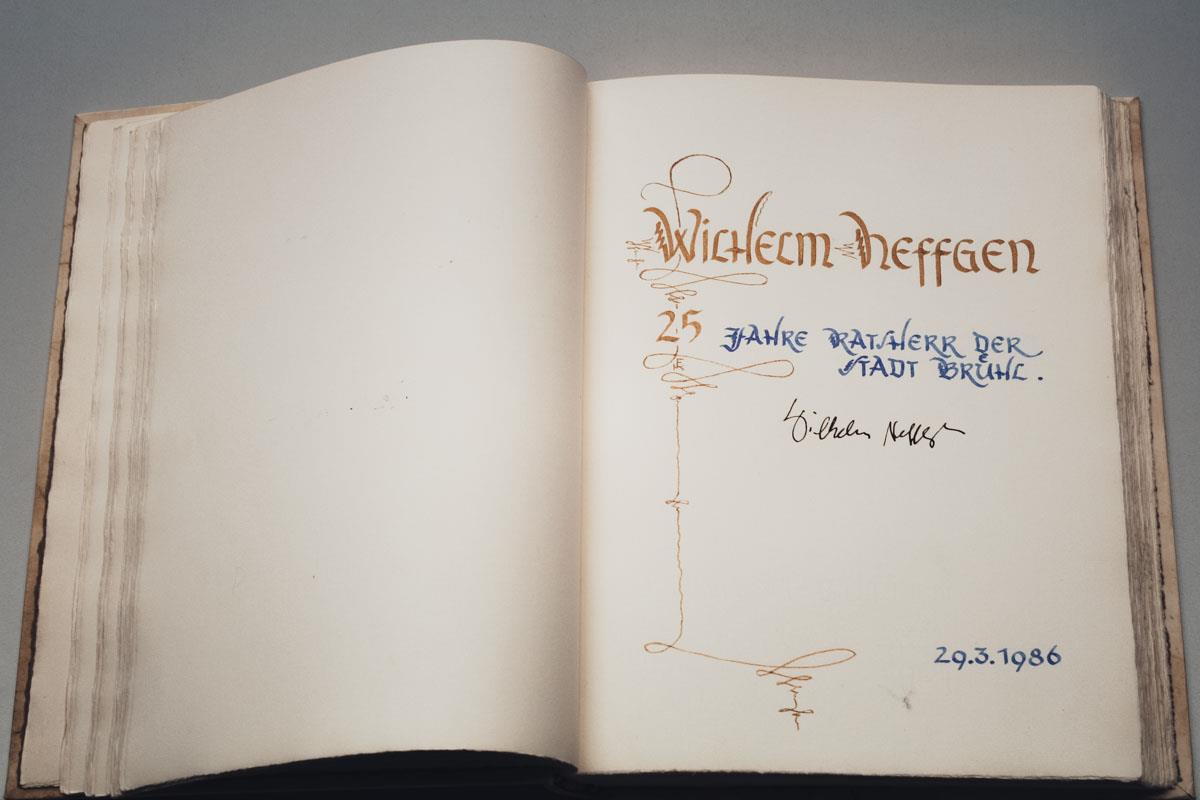 Wilhelm Neffgen
25 Jahre Ratsherr der
Stadt Brühl.
Wilhelm Neffgen
29.3.1986